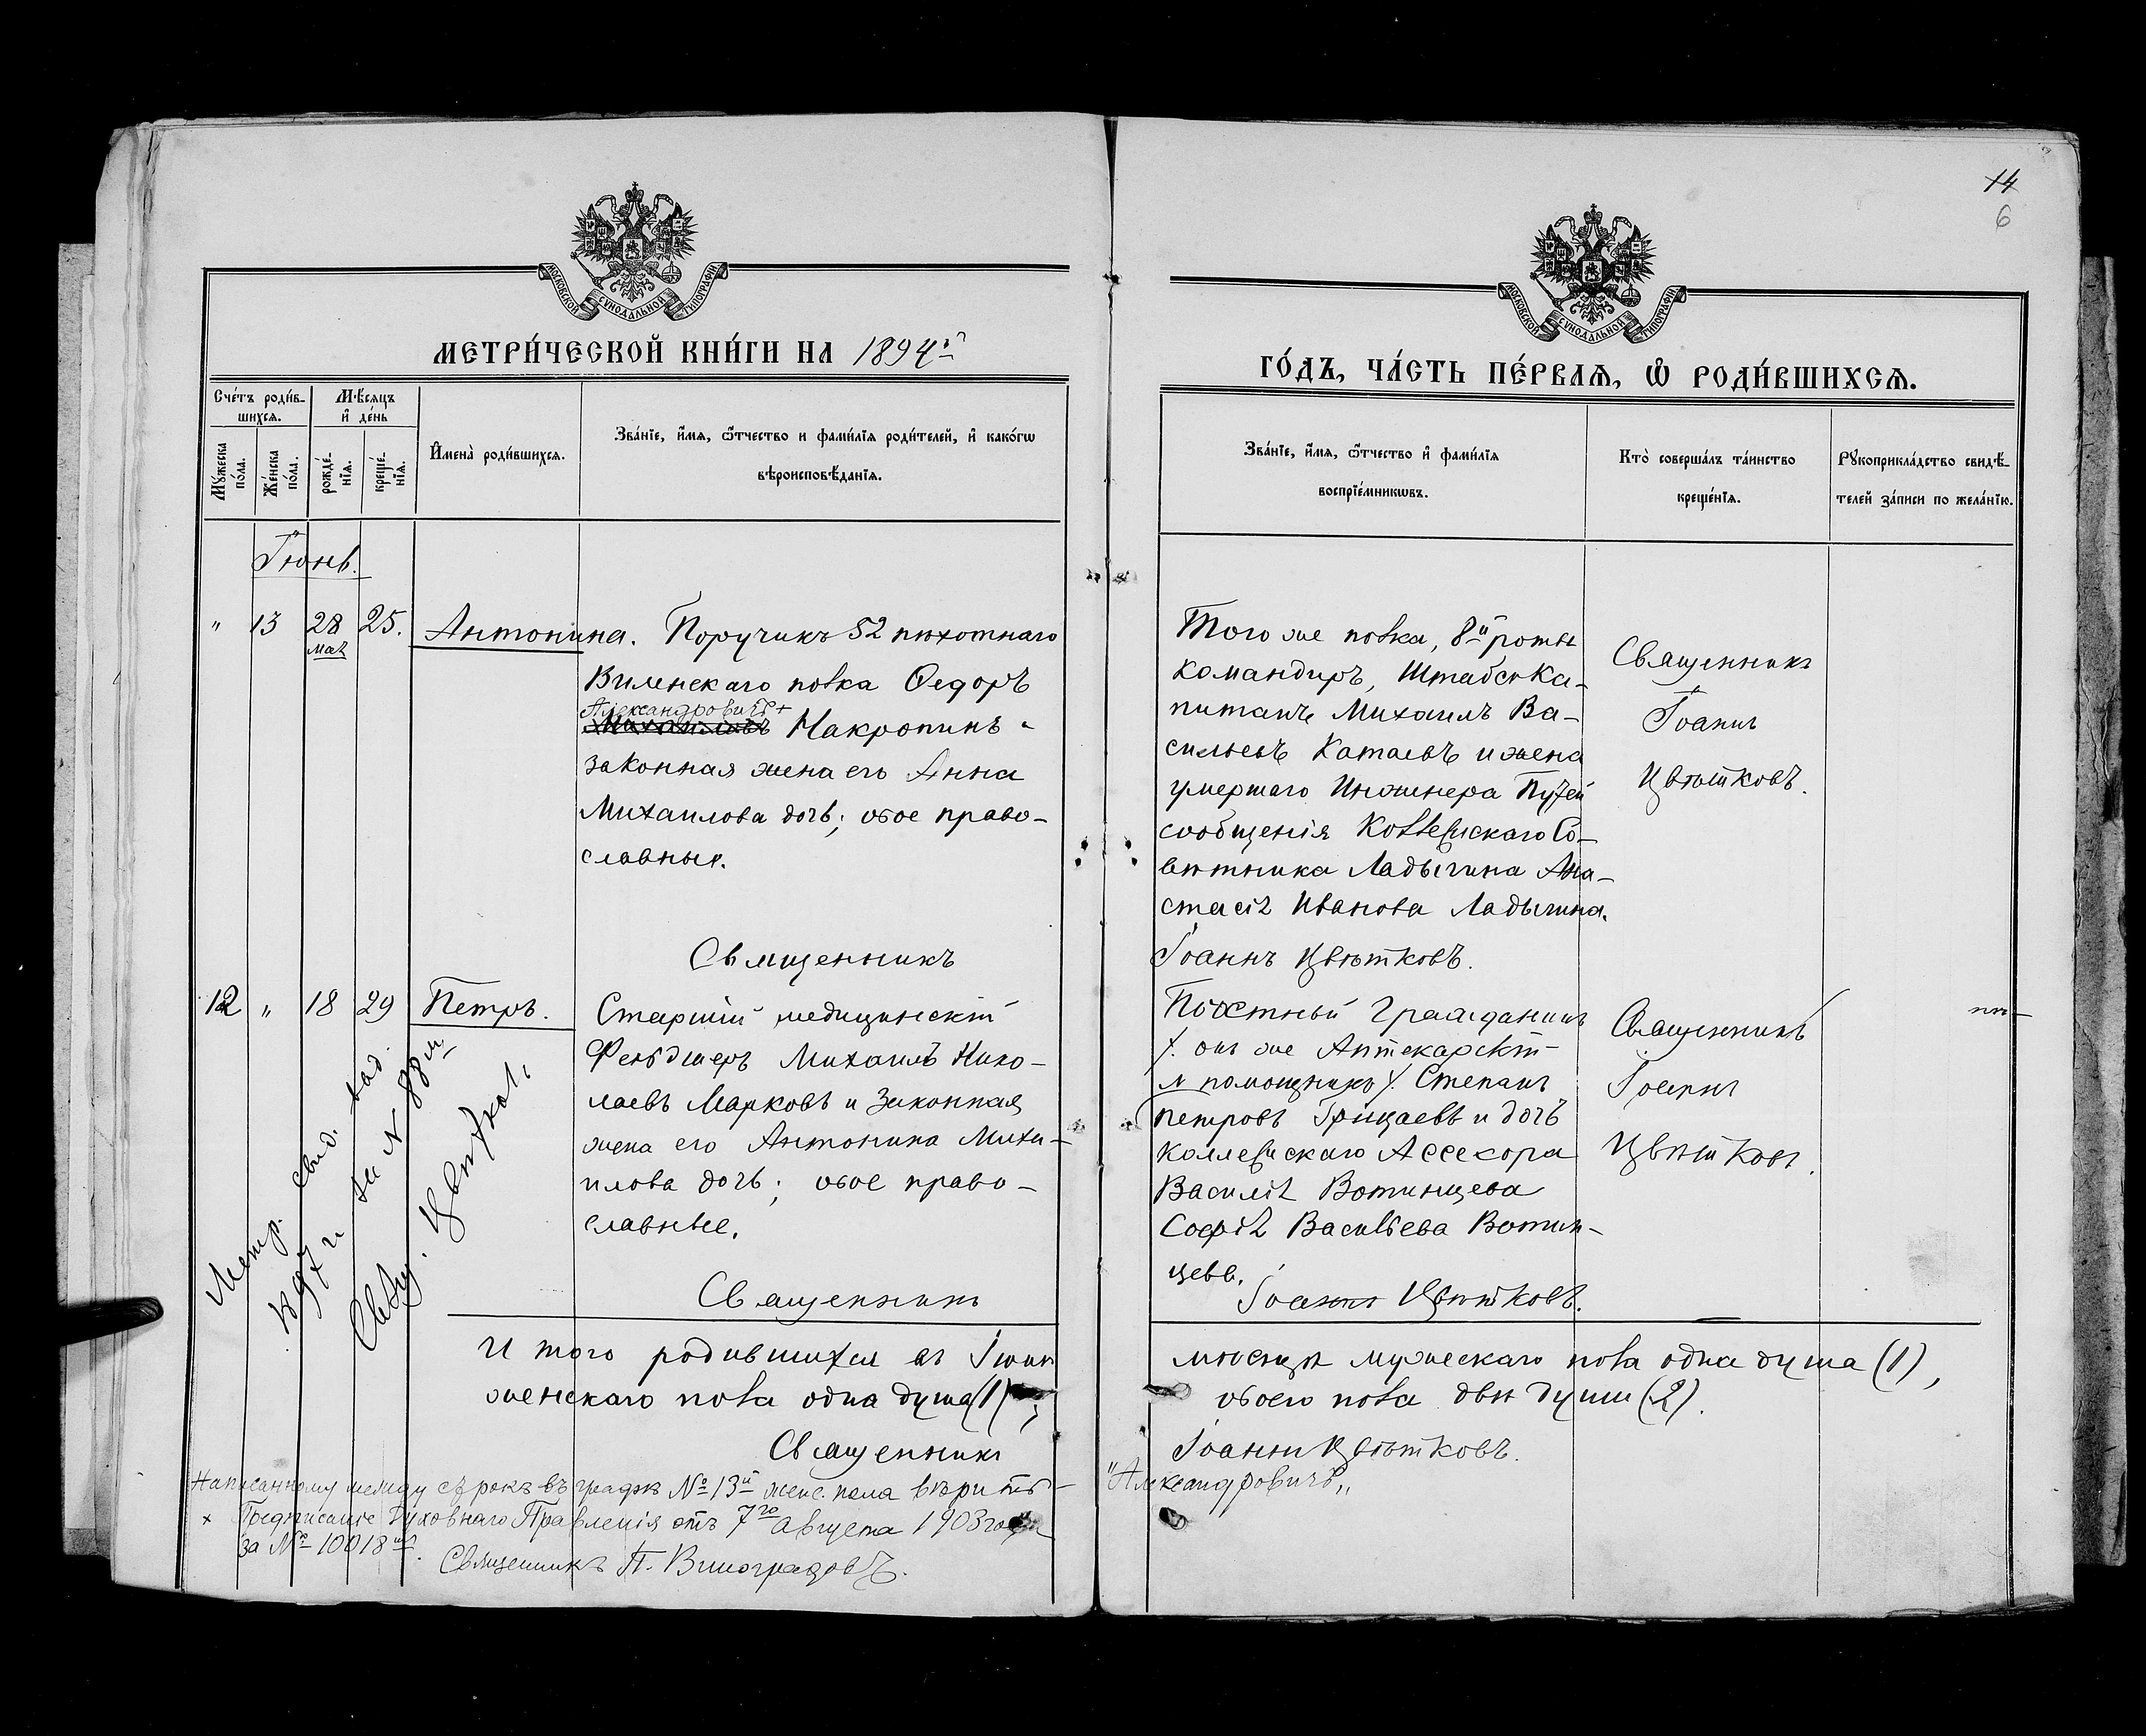 14
6
МОСКОВСКОЙ СѴНОДАЛЬНОЙ ТИПОГРАФІИ
МЕТРИ́ЧЕСКОЙ КНИ́ГИ НА 1894й
Сче́тъ роди́в-
шихсѧ.
Мѣ́сѧцъ
и҆ де́нь
Мꙋ́жеска
по́ла.
Же́нска
по́ла.
рожде́-
нїѧ.
креще́-
нїѧ.
И҆мена̀ роди́вшихсѧ.
Зва́нїе, и҆́мѧ, ѻ҆́тчество и фами́лїѧ роди́телей, и҆ како́гѡ
вѣроисповѣ́данїѧ.
Іюнь.
" 13 28 25. Антонина. Поручикъ 52 пѣхотнаго
мая
Виленскаго полка Ѳедоръ
Александровичъ +
Михаиловъ Макропинъ
законная жена его Анна
Михаилова дочь; обое право-
славные.
Священникъ
12 " 18 29 Петръ. Старшій медицинскій
Фельдшеръ Михаилъ Нико-
лаевъ Марковъ и законная
жена его Антонина Миха-
илова дочь; обое право-
славные.
Священникъ
Метр. свид. выд.
1897 г за № 88м
Свящ. Цвѣтковъ
И того родившихся въ Іюнѣ
женскаго пола одна душа (1),
Священникъ
Написанному между строкъ въ графѣ № 13й женс. пола вѣрить
+ Предписаніе Духовнаго Правленія отъ 7го Августа 1903 года
за № 10018м.
Священникъ П. Виноградовъ.
МОСКОВСКОЙ СѴНОДАЛЬНОЙ ТИПОГРАФІИ
ГО́ДЪ, ЧА́СТЬ ПЕ́РВАѦ, Ѡ҆ РОДИ́ВШИХСѦ.
Зва́нїе, и҆́мѧ, ѻ҆́тчество и҆ фами́лїѧ
воспрїе́мникѡвъ.
Кто̀ соверша́лъ та́инство
креще́нїѧ.
Рꙋкоприкла́дство свидѣ́-
телей за́писи по жела́нїю.
Того же полка, 8й роты
командиръ, Штабсъ-Ка-
питанъ Михаилъ Ва-
сильевъ Катаевъ и жена
умершаго Инженера Путей
сообщенія Коллежскаго Со-
вѣтника Ладыгина Ана-
стасія Иванова Ладыгина.
Іоаннъ Цвѣтковъ.
Священникъ
Іоаннъ
Цвѣтковъ.
Почетный Гражданинъ
/. онъ же Аптекарскій
помощникъ /. Степанъ
Петровъ Грицаевъ и дочь
Коллежскаго Ассесора
Василія Вотинцева
Софія Васильева Вотин-
цева.
Іоаннъ Цвѣтковъ.
Священникъ
Іоаннъ
Цвѣтковъ.
мѣсяцѣ мужескаго пола одна душа (1),
обоего пола двѣ души (2).
Іоаннъ Цвѣтковъ.
"Александровичъ"